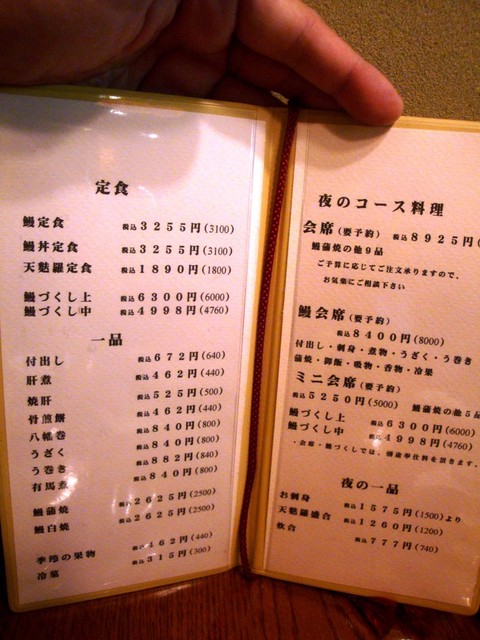 定食
鰻定食 税込3255円(3100)
鰻丼定食 税込3255円(3100)
天麩羅定食 税込1890円(1800)
鰻づくし上 税込6300円(6000)
鰻づくし中 税込4998円(4760)
一品
付出し 税込672円(640)
肝煮 税込462円(440)
焼肝 税込525円(500)
骨煎餅 税込462円(440)
八幡巻 税込840円(800)
うざく 税込840円(800)
う巻き 税込882円(840)
有馬煮 税込840円(800)
鰻蒲焼 税込2625円(2500)
鰻白焼 税込2625円(2500)
季節の果物 税込462円(440)
冷菓 税込315円(300)
夜のコース料理
会席(要予約) 税込8925円(
鰻蒲焼の他9品
ご予算に応じてご注文承りますので、
お気楽にご相談下さい
鰻会席(要予約)
税込8400円(8000)
付出し・刺身・煮物・うざく・う巻き
蒲焼・御飯・吸物・香物・冷菓
ミニ会席(要予約)
税込5250円(5000) 鰻蒲焼の他5品
鰻づくし上 税込6300円(6000)
鰻づくし中 税込4998円(4760)
・会席・鰻づくしでは、別途奉仕料を頂きます。
夜の一品
お刺身 税込1575円(1500)より
天麩羅盛合 税込1260円(1200)
炊合 税込777円(740)